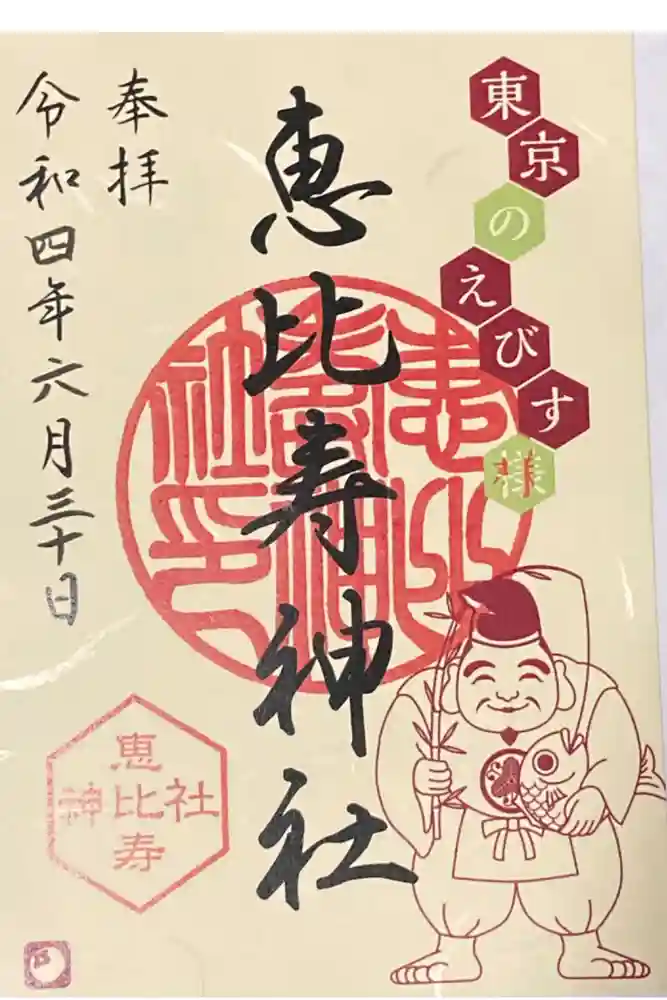 東京のえびす様
恵比寿神社
奉拝
令和四年六月三十日
恵比寿
神社